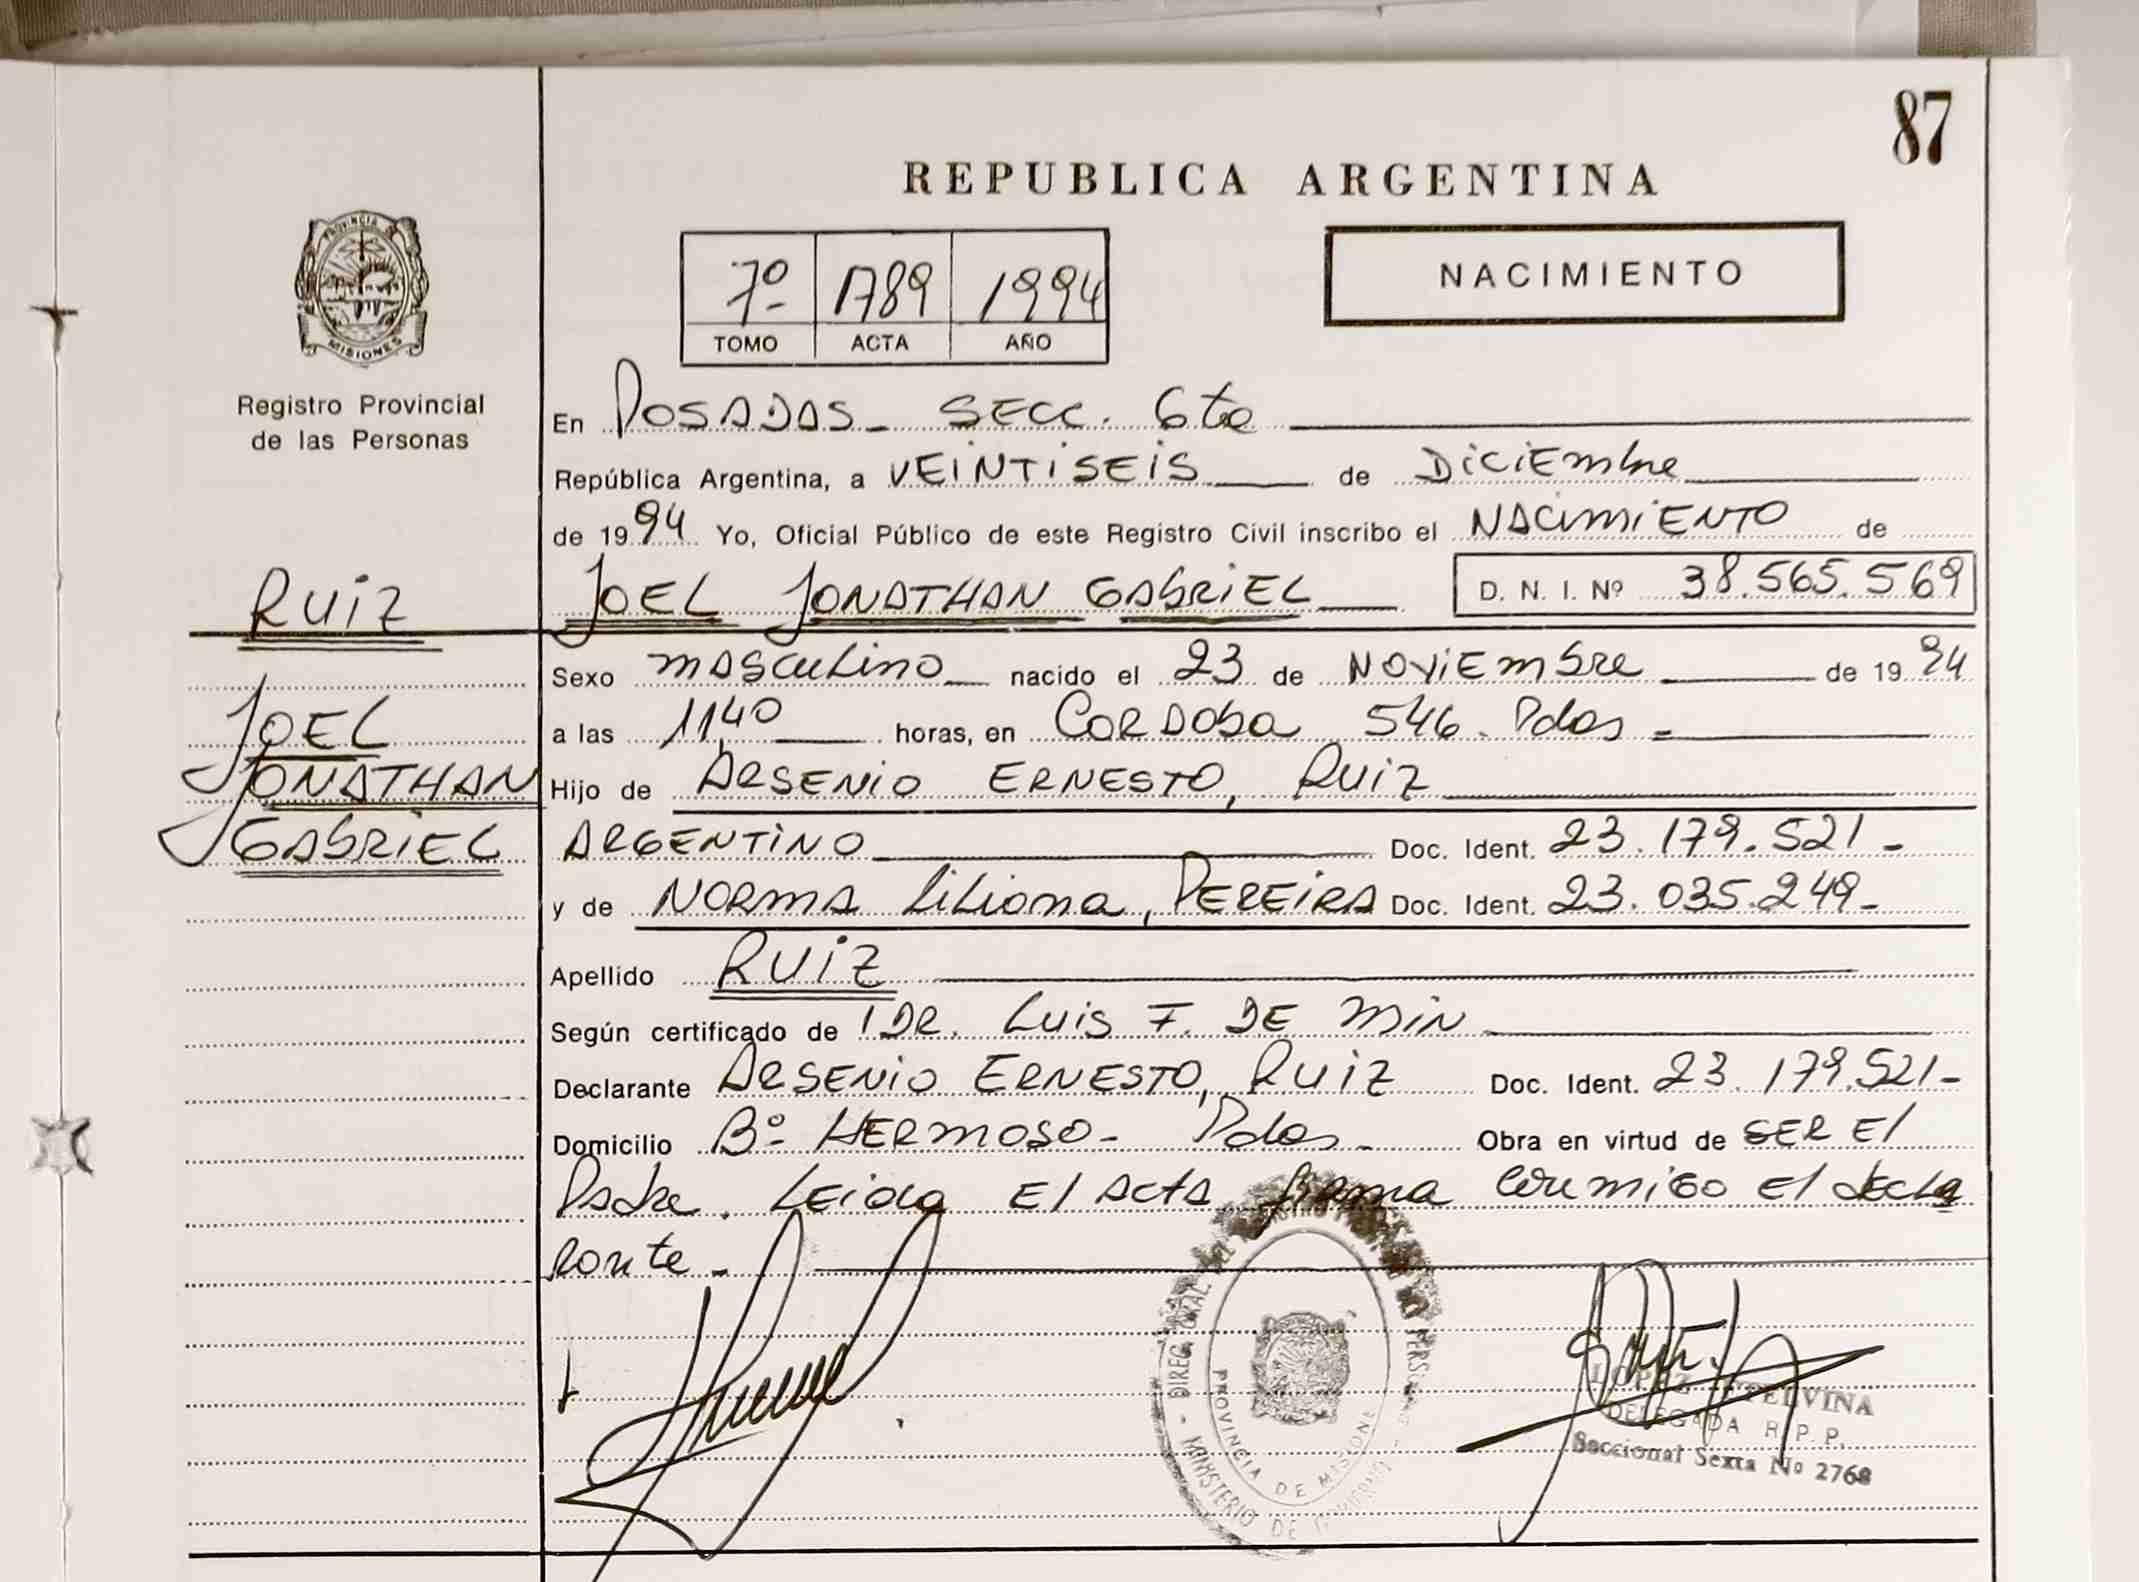 87
REPUBLICA ARGENTINA
PROVINCIA
MISIONES
Registro Provincial
de las Personas
7º 1789 1994
TOMO ACTA AÑO
NACIMIENTO
En POSADAS - SECC. 6ta
República Argentina, a VEINTISEIS de DICIEMbre
de 1994 Yo, Oficial Público de este Registro Civil inscribo el NACIMIENTO de
Ruiz
JOEL JONATHAN GABRIEL D. N. I. Nº 38.565.569
Sexo mASCULINO nacido el 23 de NOVIEMBRE de 1994
JOEL
a las 11,40 horas, en CORDOBA 546. Pdas -
JONATHAN
Hijo de ARSENIO ERNESTO, RUIZ
GABRIEL
ARGENTINO Doc. Ident. 23.179.521-
y de NORMA LILIANA, PEREIRA Doc. Ident. 23.035.249-
Apellido RUIZ
Según certificado de DR. Luis F. DE MIN
Declarante ARSENIO ERNESTO, RUIZ Doc. Ident. 23.179.521-
Domicilio Bº HERMOSO - Pdas - Obra en virtud de SER El
Padre. LEIDA El ActA firma conmigo El decla
rante -
PROVINCIA DE MISIONES
MINISTERIO DE GOBIERNO
LOPEZ ETELVINA
DELEGADA R.P.P.
Seccional Sexta Nº 2768